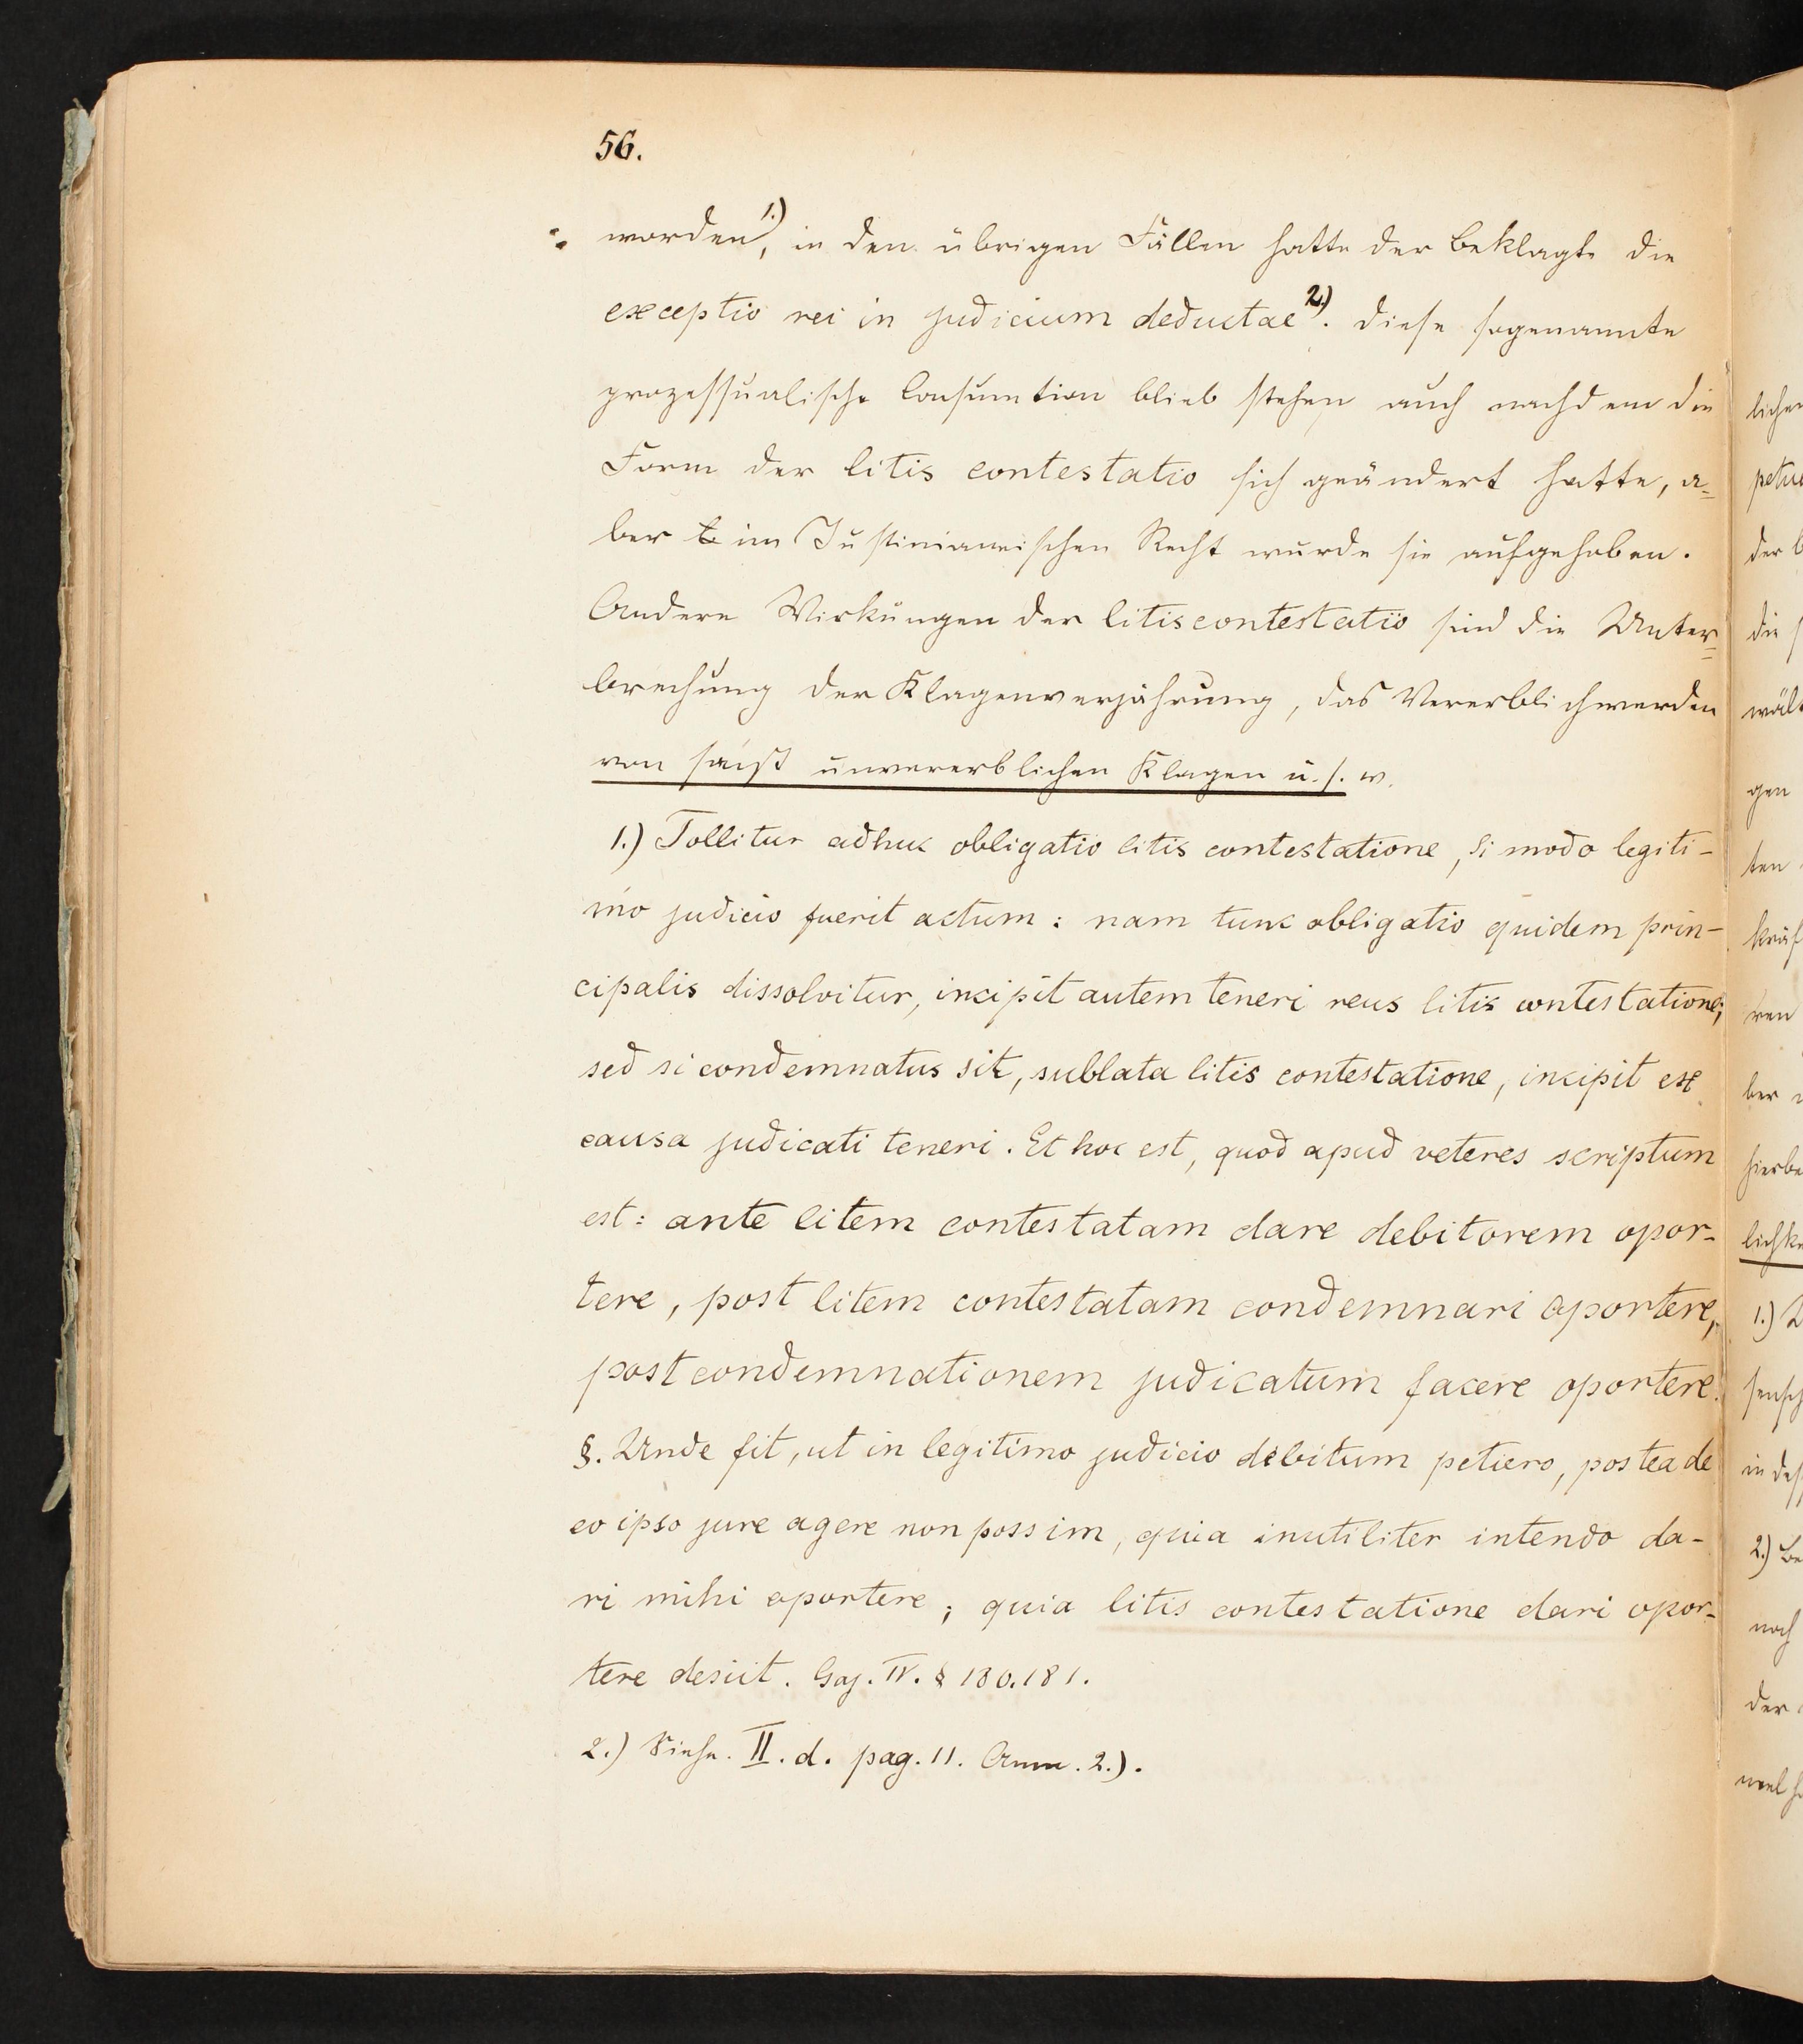 56.
worden 1.), in den übrigen Fällen hatte der Beklagte die
exceptio rei in judicium deductae 2.). Diese sogenannte
prozessualische Consumtion blieb stehen auch nachdem die
Form der litis contestatio sich geändert hatte, a=
ber im Justinianeischen Recht wurde sie aufgehoben.
Andere Wirkungen der litiscontestatio sind die Unter=
brechung der Klagenverjährung, das Vererblichwerden
von sonst unvererblichen Klagen u. s. w.
1.) Tollitur adhuc obligatio litis contestatione, si modo legiti-
mo judicio fuerit actum: nam tunc obligatio quidem prin-
cipalis dissolvitur, incipit autem teneri reus litis contestatione;
sed si condemnatus sit, sublata litis contestatione, incipit ex
causa judicati teneri. Et hoc est, quod apud veteres scriptum
est: ante litem contestatam dare debitorem opor-
tere, post litem contestatam condemnari oportere,
post condemnationem judicatum facere oportere.
§. Unde fit, ut in legitimo judicio debitum petiero, postea de
eo ipso jure agere non possim, quia inutiliter intendo da-
ri mihi oportere; quia litis contestatione dari opor-
tere desiit. Gaj. IV. § 180.181.
2.) Siehe II. d. pag. 11. Anm. 2.).
lichen
der
die
gen
ten
ren
ber
1.)
2.)
noch
der